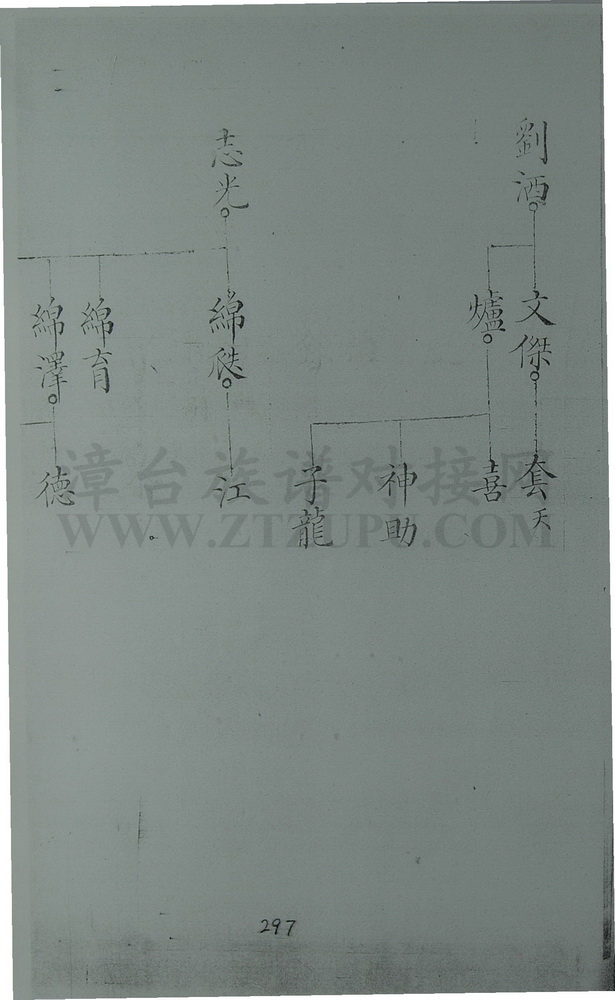 劉酒
文傑
爐
套天
喜
神助
子龍
志光
綿
江
綿育
綿澤
德
漳台族谱对接网
WWW.ZTZUPU.COM
297